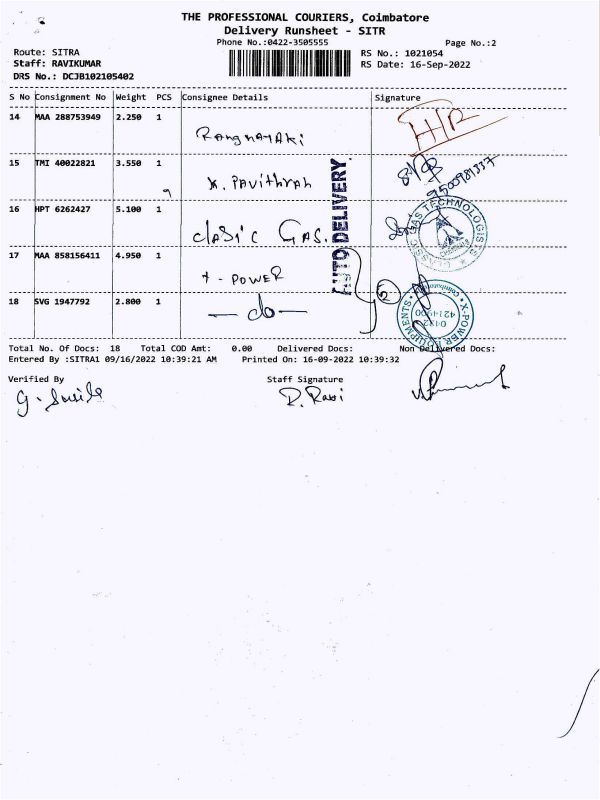 THE PROFESSIONAL COURIERS, Coimbatore
Delivery Runsheet - SITR
Phone No.:0422-3505555
Page No.:2
Route: SITRA
Staff: RAVIKUMAR
DRS No.: DCJB102105402
RS No.: 1021054
RS Date: 16-Sep-2022
S No Consignment No Weight PCS Consignee Details Signature
14 MAA 288753949 2.250 1 Rangnayaki H/R
15 TMI 40022821 3.550 1 K. Pavithrah 9500981337
16 HPT 6262427 5.100 1 Clasic Gas.
17 MAA 858156411 4.950 1 X - POWER
18 SVG 1947792 2.800 1 — do —
AUTO DELIVERY
CLASSIC GAS TECHNOLOGISTS
X-POWER EQUIPMENTS
Coimbatore
0422
4214900
5
Total No. Of Docs: 18 Total COD Amt: 0.00 Delivered Docs: Non Delivered Docs:
Entered By :SITRA1 09/16/2022 10:39:21 AM Printed On: 16-09-2022 10:39:32
Verified By Staff Signature
R. Ravi